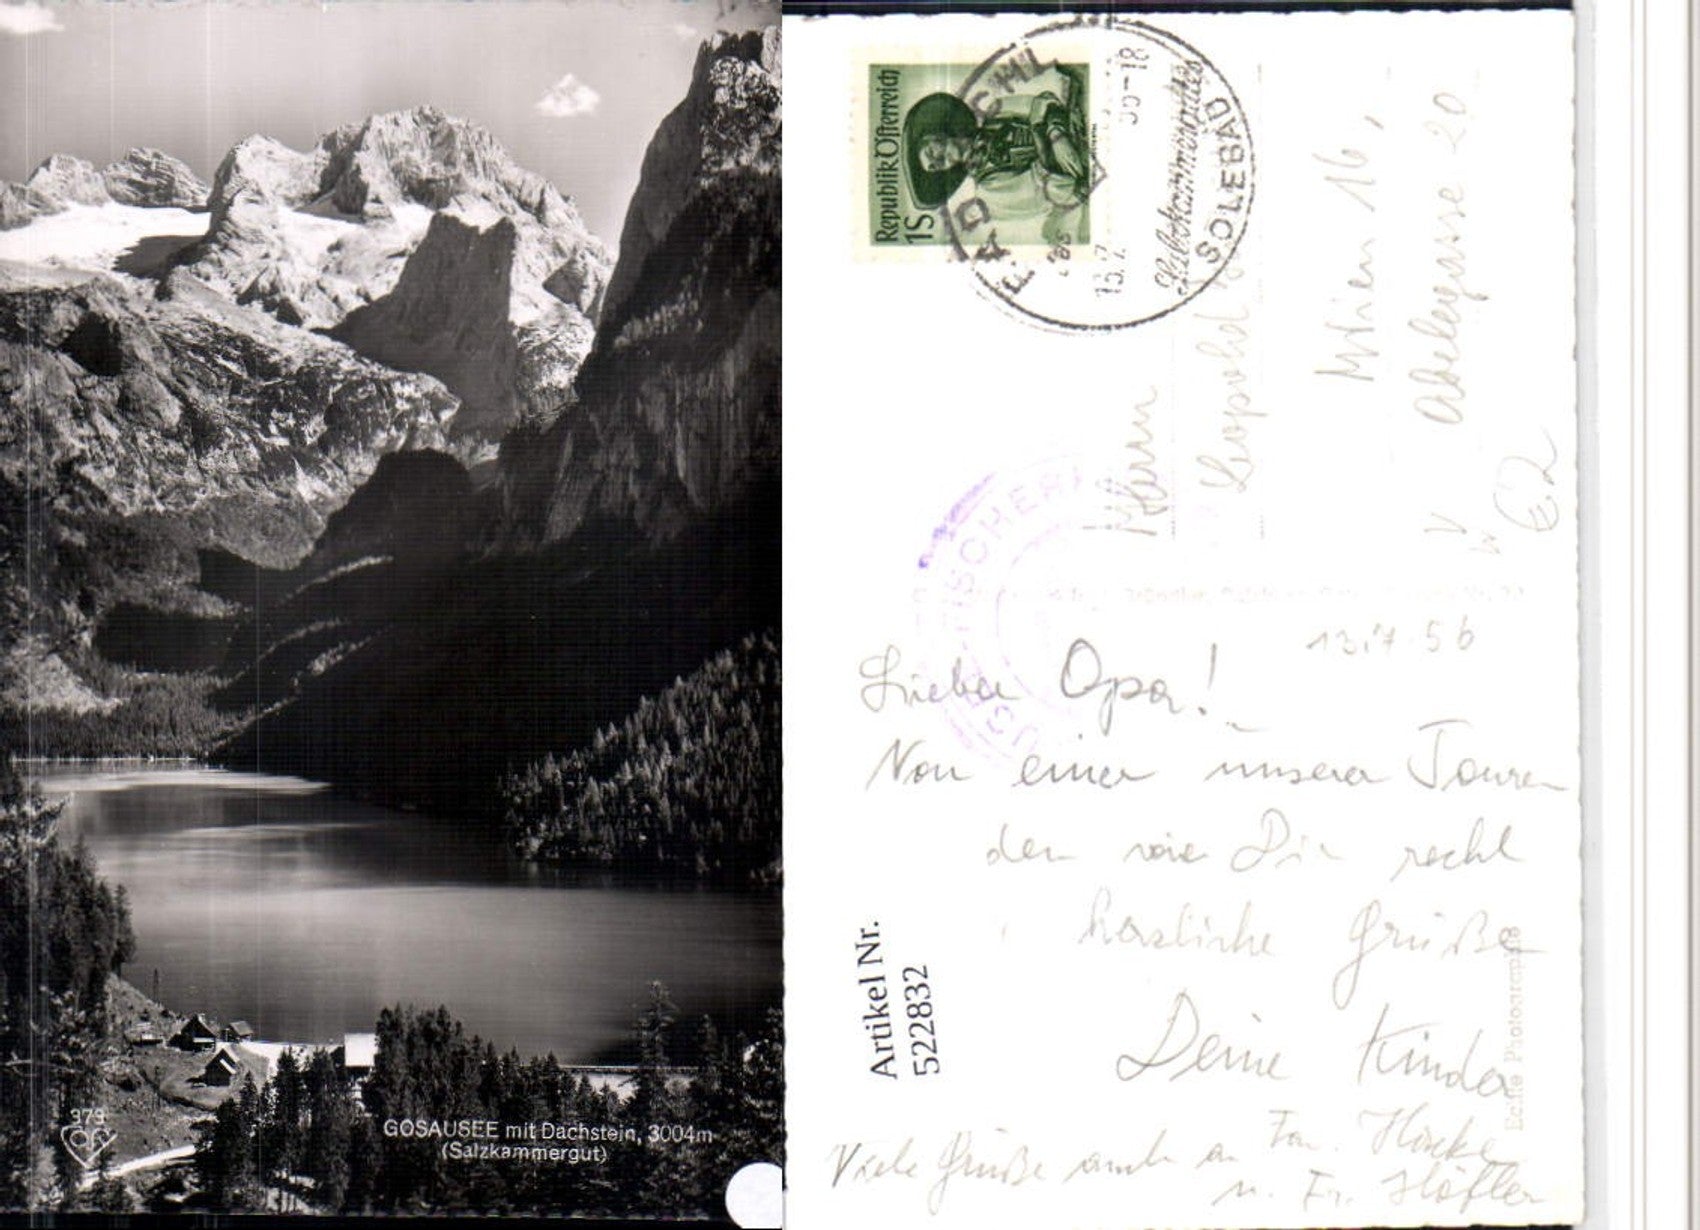 373
GOSAUSEE mit Dachstein, 3004m
(Salzkammergut)
Republik Österreich
1S
BAD ISCHL
13.7
-18
SOLEBAD
Herrn
Leopold
Wien 16,
Abelegasse 20
13.7.56
Lieber Opa!
Von einer unserer Touren
den wir Dir recht
herzliche Grüße
Deine Kinder
Viele Grüße auch an Fam.
u. Fr. Höfler
Echte Photographie
Artikel Nr.
522832